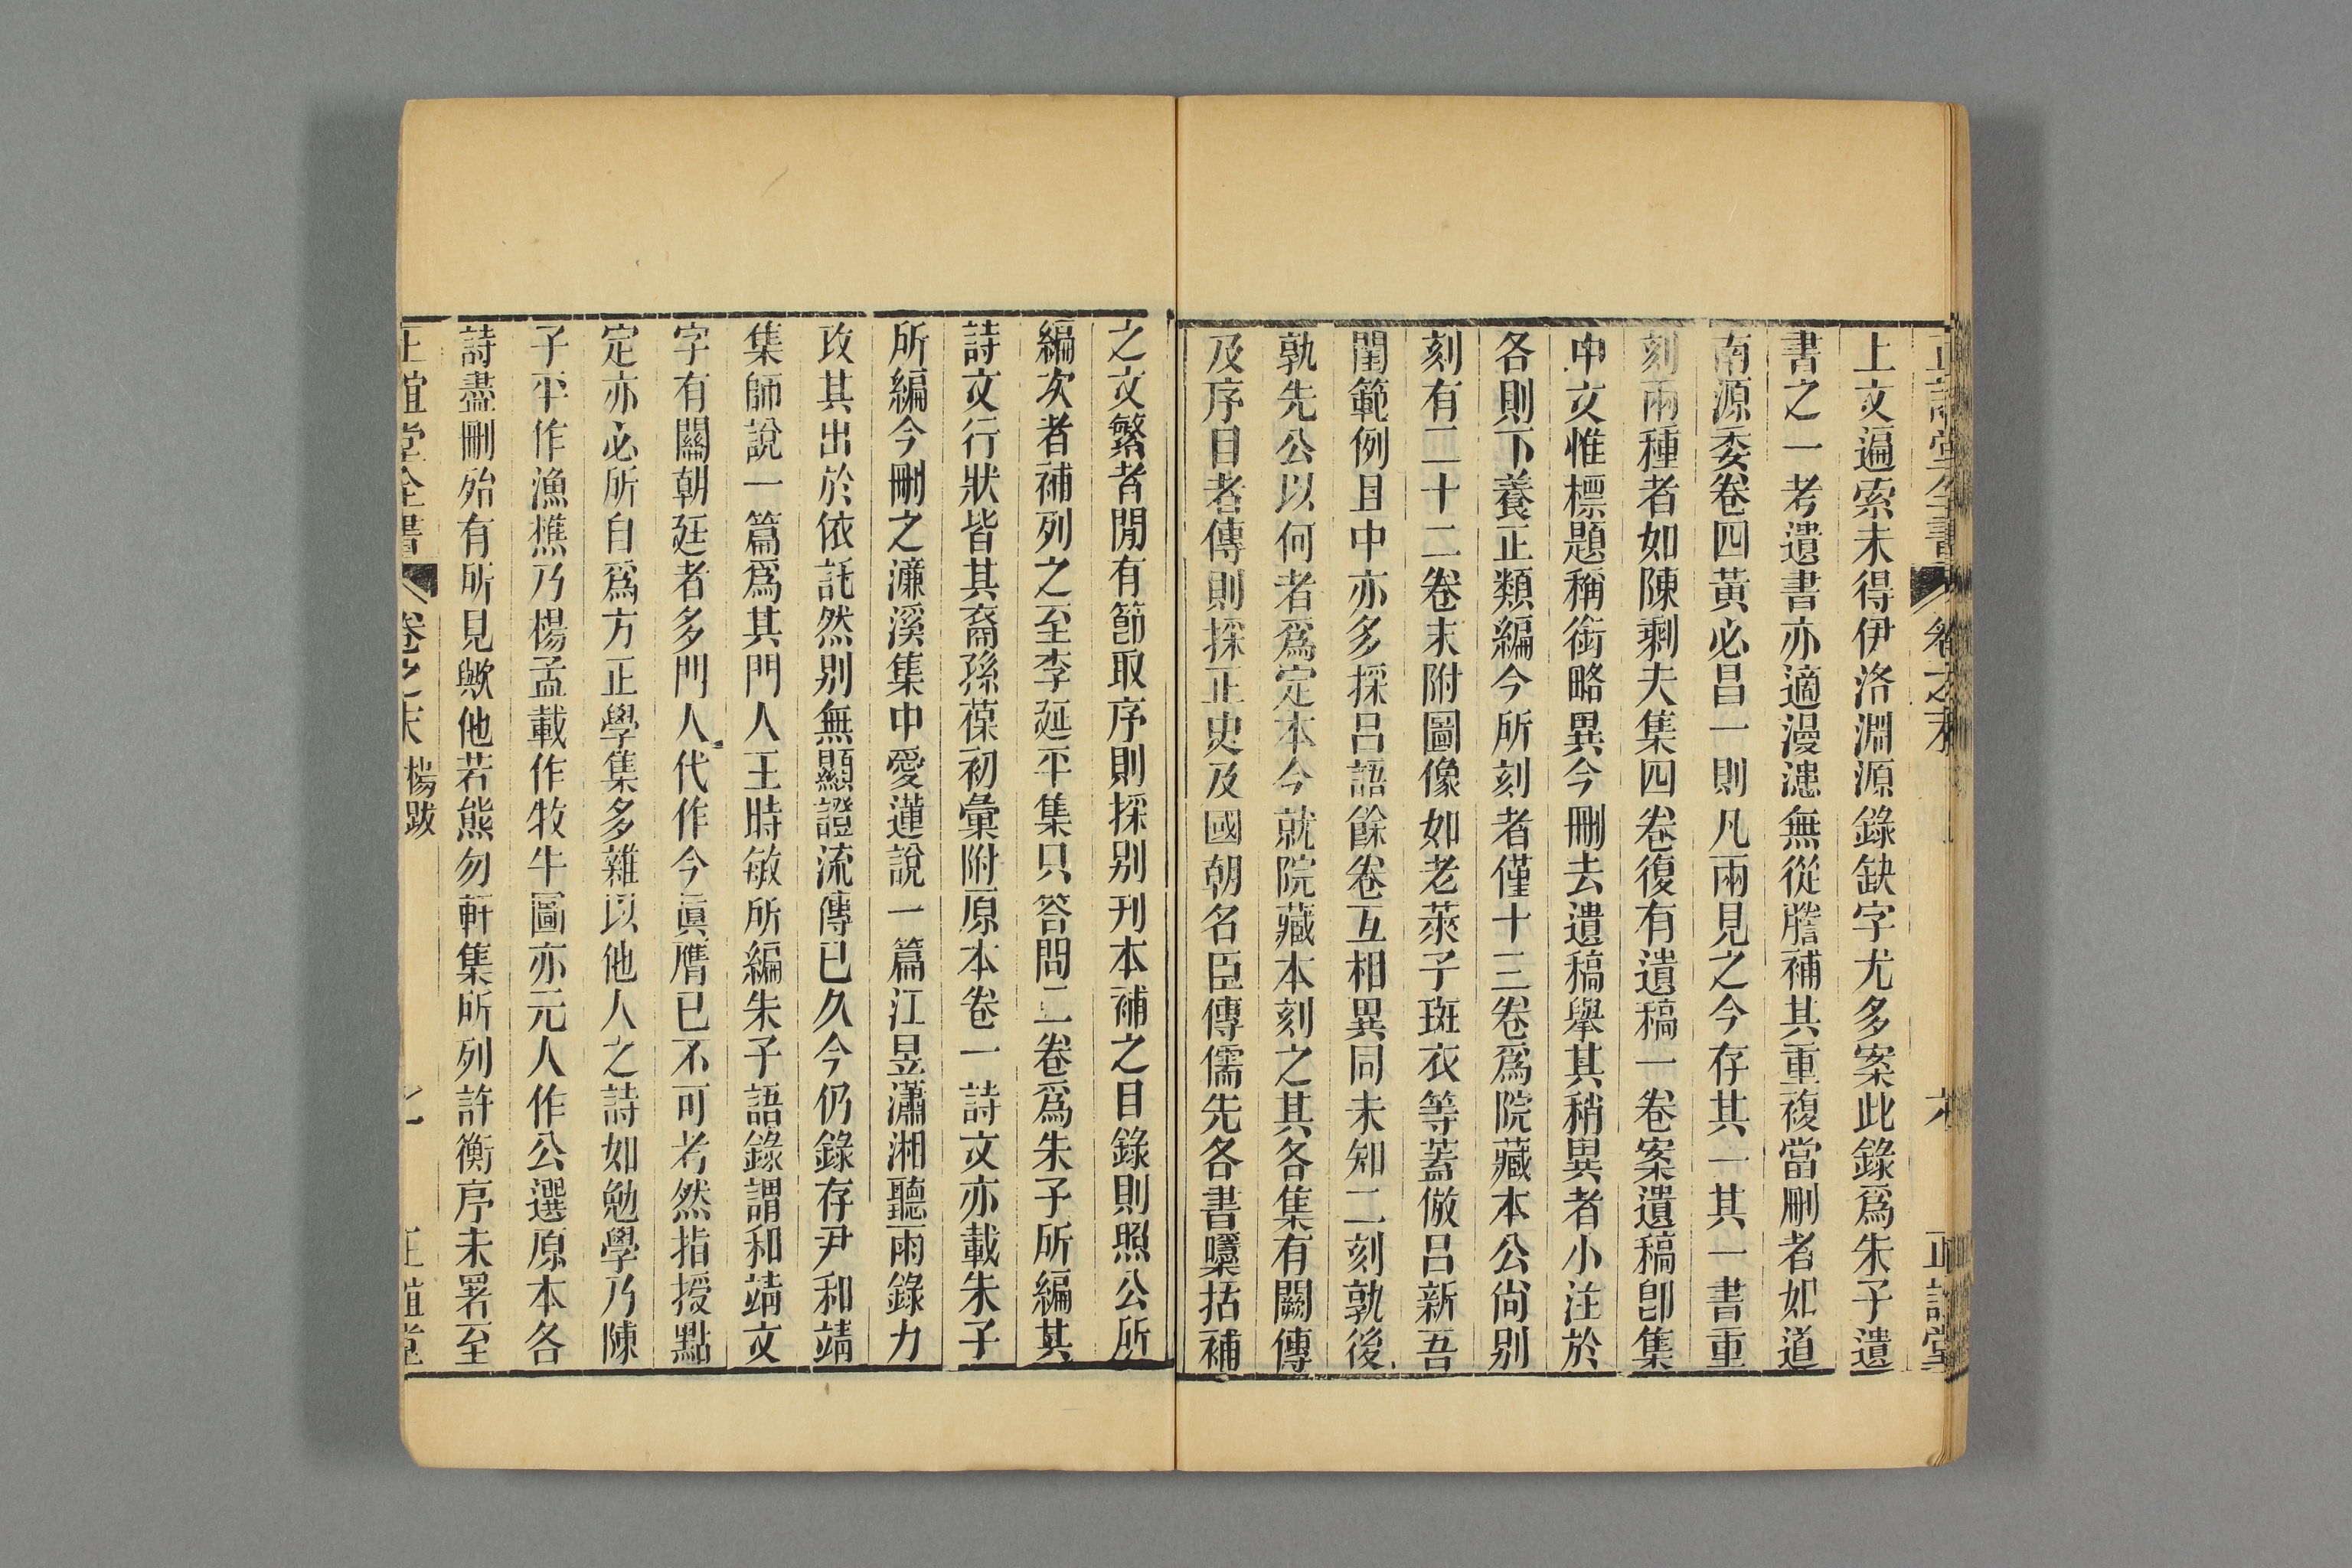 正誼堂全書 卷之末 六 正誼堂
上文遍索未得伊洛淵源錄缺字尤多案此錄爲朱子遺
書之一考遺書亦適漫漶無從謄補其重複當刪者如道
南源委卷四黃必昌一則凡兩見之今存其一其一書重
刻兩種者如陳剩夫集四卷復有遺稿一卷案遺稿卽集
中文惟標題稱銜略異今刪去遺稿舉其稍異者小注於
各則下養正類編今所刻者僅十三卷爲院藏本公尚別
刻有二十二卷末附圖像如老萊子斑衣等蓋倣呂新吾
閨範例目中亦多採呂語餘卷互相異同未知二刻孰後
孰先公以何者爲定本今就院藏本刻之其各集有闕傳
及序目者傳則採正史及國朝名臣傳儒先各書檃括補
之文繁者閒有節取序則採別刊本補之目錄則照公所
編次者補列之至李延平集只答問二卷爲朱子所編其
詩文行狀皆其裔孫葆初彙附原本卷一詩文亦載朱子
所編今刪之濂溪集中愛蓮說一篇江昱瀟湘聽雨錄力
攻其出於依託然別無顯證流傳已久今仍錄存尹和靖
集師說一篇爲其門人王時敏所編朱子語錄謂和靖文
字有關朝廷者多門人代作今眞贋已不可考然指授點
定亦必所自爲方正學集多雜以他人之詩如勉學乃陳
子平作漁樵乃楊孟載作牧牛圖亦元人作公選原本各
詩盡刪殆有所見歟他若熊勿軒集所列許衡序未署至
正誼堂全書 卷之末 楊跋 七 正誼堂